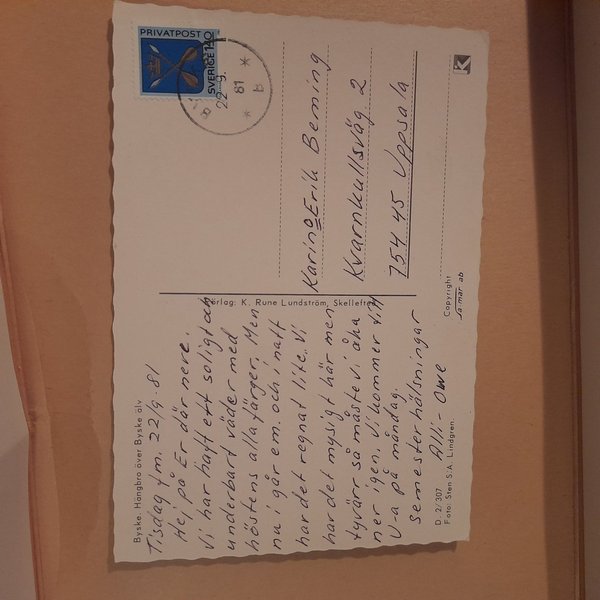 Byske. Hängbro över Byske älv
Tisdag fm. 22/9-81
Hej på Er där nere.
Vi har haft ett soligt och
underbart väder med
höstens alla färger. Men
nu i går em. och i natt
har det regnat lite. Vi
har det mysigt här men
tyvärr så måste vi åka
ner igen. Vi kommer till
U-a på måndag.
Semesterhälsningar
Alli - Owe
D. 2/307
Foto: Sten S.A. Lindgren.
Förlag: K. Rune Lundström, Skellefteå
PRIVATPOST
SVERIGE 150
22 -9.
81
* b *
Karin o Erik Beming
Kvarnkullsväg 2
754 45 Uppsala
K
Copyright
ja mar ab